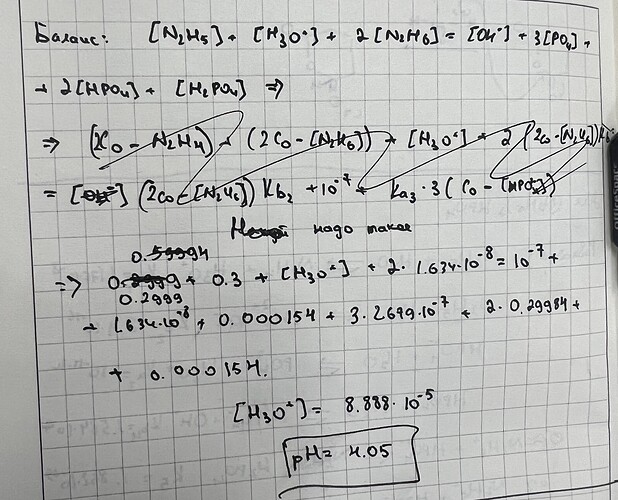 Баланс: [N₂H₅] + [H₃O⁺] + 2[N₂H₆] = [OH⁻] + 3[PO₄] +
+ 2[HPO₄] + [H₂PO₄] ⇒
⇒ (2C₀ - N₂H₄) + (2C₀ - [N₂H₆]) + [H₃O⁺] + 2(2C₀ - [N₂H₆])
= [OH⁻] (2C₀ - [N₂H₆]) Kb₂ + 10⁻⁷ + Ka₃ · 3 (C₀ - [HPO₄])
надо такое
0.59994
⇒ 0.2999 + 0.3 + [H₃O⁺] + 2 · 1.634·10⁻⁸ = 10⁻⁷ +
+ 1.634·10⁻⁸ + 0.000154 + 3.2699·10⁻⁷ + 2 · 0.29984 +
+ 0.000154.
[H₃O⁺] = 8.888 · 10⁻⁵
pH = 4.05